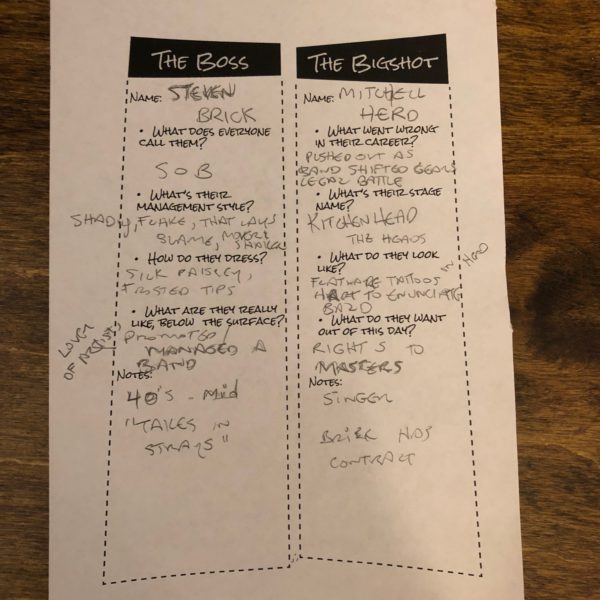 THE BOSS
NAME: STEVEN
BRICK
• WHAT DOES EVERYONE
CALL THEM?
SOB
• WHAT'S THEIR
MANAGEMENT STYLE?
SHADY, FLAKE, THAT LAYS
BLAME, MOVER SHAKER
• HOW DO THEY DRESS?
SICK PAISLEY,
FROSTED TIPS
• WHAT ARE THEY REALLY
LIKE, BELOW THE SURFACE?
PROMOTED /
MANAGED A
BAND
LOVER
OF ARTISTS
NOTES:
40'S - MID
"TAKES IN
STRAYS"
THE BIGSHOT
NAME: MITCHELL
HERD
• WHAT WENT WRONG
IN THEIR CAREER?
PUSHED OUT AS
BAND SHIFTED GEARS
LEGAL BATTLE
• WHAT'S THEIR STAGE
NAME?
KITCHENHEAD
THE HEADS
• WHAT DO THEY LOOK
LIKE?
FLATWARE TATTOOS IN HEAD
TO ENUNCIATE
BALD
• WHAT DO THEY WANT
OUT OF THIS DAY?
RIGHTS TO
MASTERS
NOTES:
SINGER
BRICK HAS
CONTRACT